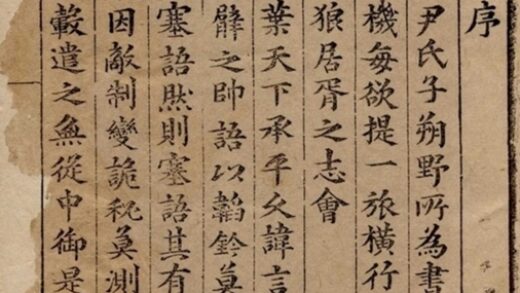 序
尹氏子朔野所為書
機每欲提一旅橫行
狼居胥之志會
葉天下承平久諱言
臂之帥語以韜鈐莫
塞語然則塞語其有
因敵制變詭秘莫測
轂遣之無從中御是